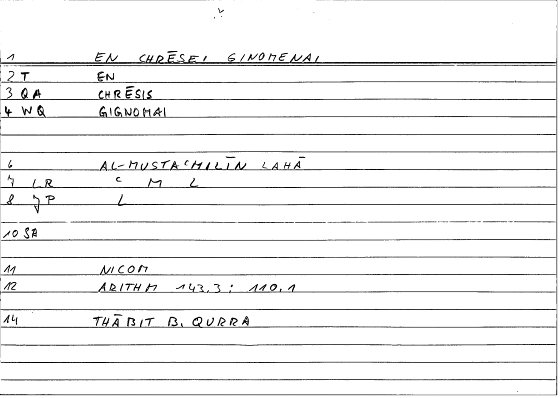 1 EN CHRĒSEI GINOMENAI
2 T EN
3 QA CHRĒSIS
4 WQ GIGNOMAI
6 AL-MUSTAʿMILĪN LAHĀ
7 LR ʿ M L
8 JP L
10 SA
11 NICOM
12 ARITHM 143,3 ; 110,1
14 THĀBIT B. QURRA